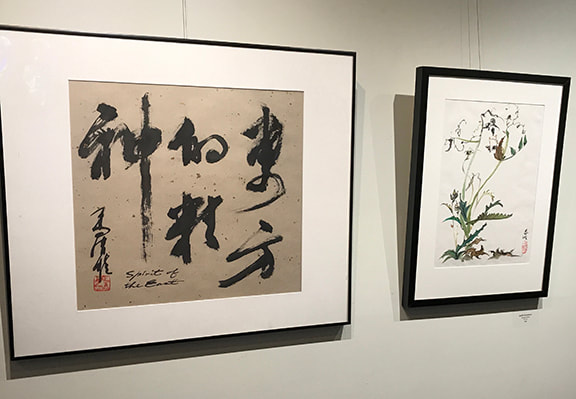 東方
的精
神
Spirit of
the East